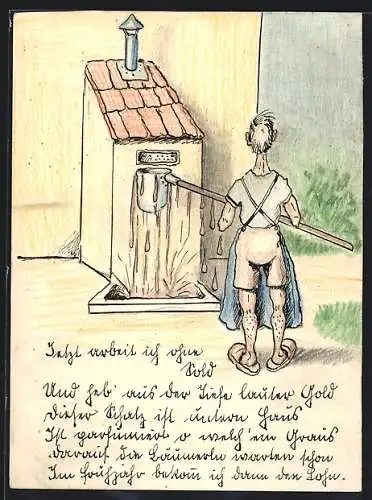 Jetzt arbeit ich ohne
Sold
Und heb' aus der Tiefe lauter Gold
Dieser Schatz ist unterm Haus
Ist parfümiert o welch' ein Graus
Darauf die Bäumerln warten schon
Im Frühjahr bekom̅ ich dann den Lohn.